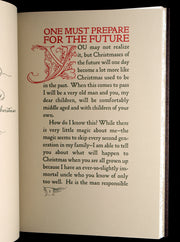 ONE MUST PREPARE
FOR THE FUTURE
YOU may not realize
it, but Christmases
of the future will one day
become a lot more like
Christmas used to be
in the past. When this comes to pass
I will be a very old man and you, my
dear children, will be comfortably
middle aged and with children of your
own.
How do I know this? While there
is very little magic about me—the
magic seems to skip every second gen-
eration in my family—I am able to tell
you about what will happen to
Christmas when you are all grown up
because I have an ever-so-slightly im-
mortal uncle who you know of only
too well. He is the man responsible